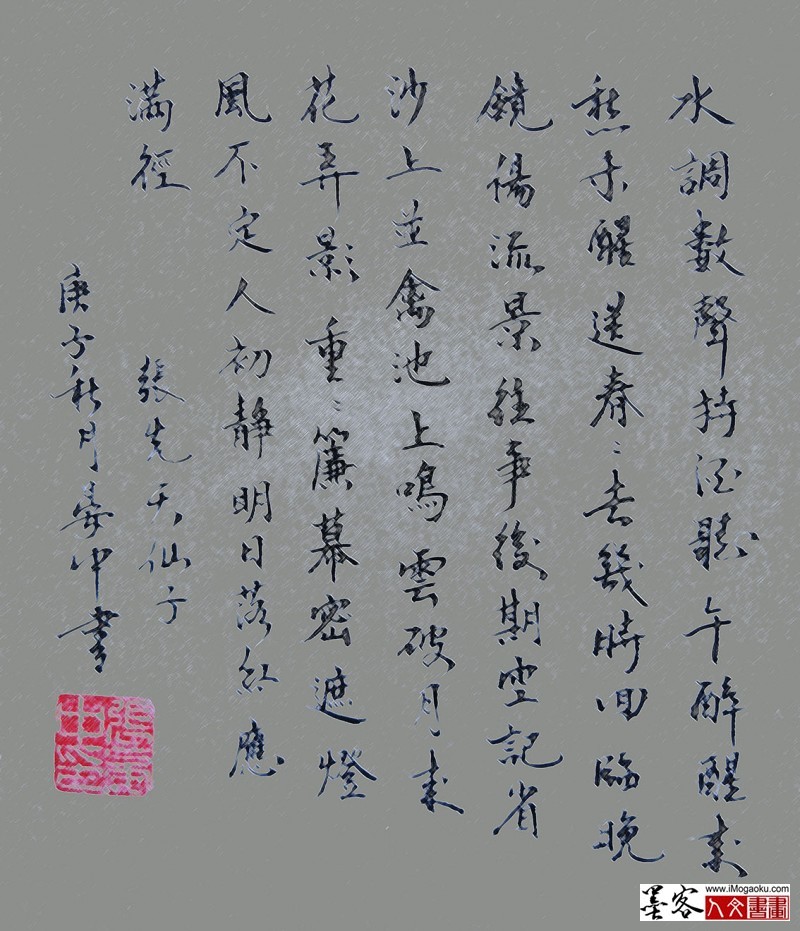 水調數聲持酒聽午醉醒來
愁未醒送春〻去幾時回臨晚
鏡傷流景往事後期空記省
沙上並禽池上鳴雲破月來
花弄影重〻簾幕密遮燈
風不定人初靜明日落紅應
滿徑
張先天仙子
庚子秋月寄中書
墨客
www.iMogaoku.com
人文書畫